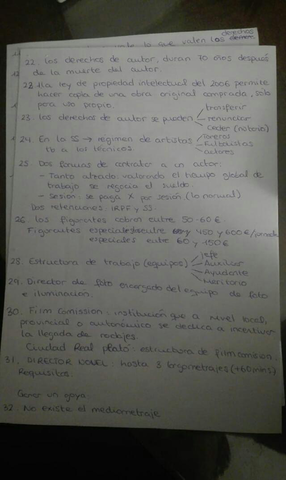 lo que valen las derechos
22. Los derechos de autor, duran 70 años después
de la muerte del autor.
22. La ley de propiedad intelectual del 2006 permite
hacer copia de una obra original comprada, solo
para uso propio.
23. Los derechos de autor se pueden transferir
renunciar
Ceder (notario)
24. En la SS → régimen de artistas toreros
No a los técnicos. futbolistas
actores
25. Dos formas de contratar a un actor:
- Tanto alzado: valorado el tiempo global de
trabajo se negocia el sueldo.
- Sesión: se paga X por sesión (lo normal)
Dos retenciones: IRPF y SS
26. Los figurantes cobran entre 50-60€
Figurantes especiales entre 450 y 600€/
especiales entre 60 y 150€
28. Estructura de trabajo (equipos) Jefe
Auxiliar
Ayudante
Meritorio
29. Director de foto encargado del equipo de foto
e iluminación.
30. Film Comission: institución que a nivel local,
provincial o autonómico se dedica a incentivar
la llegada de rodajes.
Ciudad Real Plató: estructura de film comision
31. DIRECTOR NOVEL: hasta 3 largometrajes (+60 mins)
Requisitos:
Ganar un goya
32. No existe el mediometraje